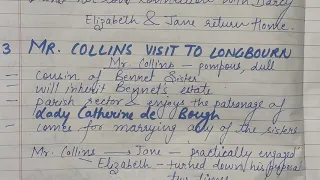 Elizabeth & Jane return Home.
3 MR. COLLINS VISIT TO LONGBOURN
Mr. Collins – pompous, dull
– cousin of Bennet Sister
– will inherit Bennet's estate
– parish rector & enjoys the patronage of
Lady Catherine de Bough
– comes for marrying any of the sisters
Mr. Collins → Jane – practically engaged
Elizabeth – turned down his proposal